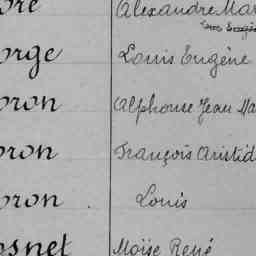 ore Alexandre Mar
orge Louis Eugène
oron Alphonse Jean Ma
oron François Aristid
oron Louis
osnet Moïse René